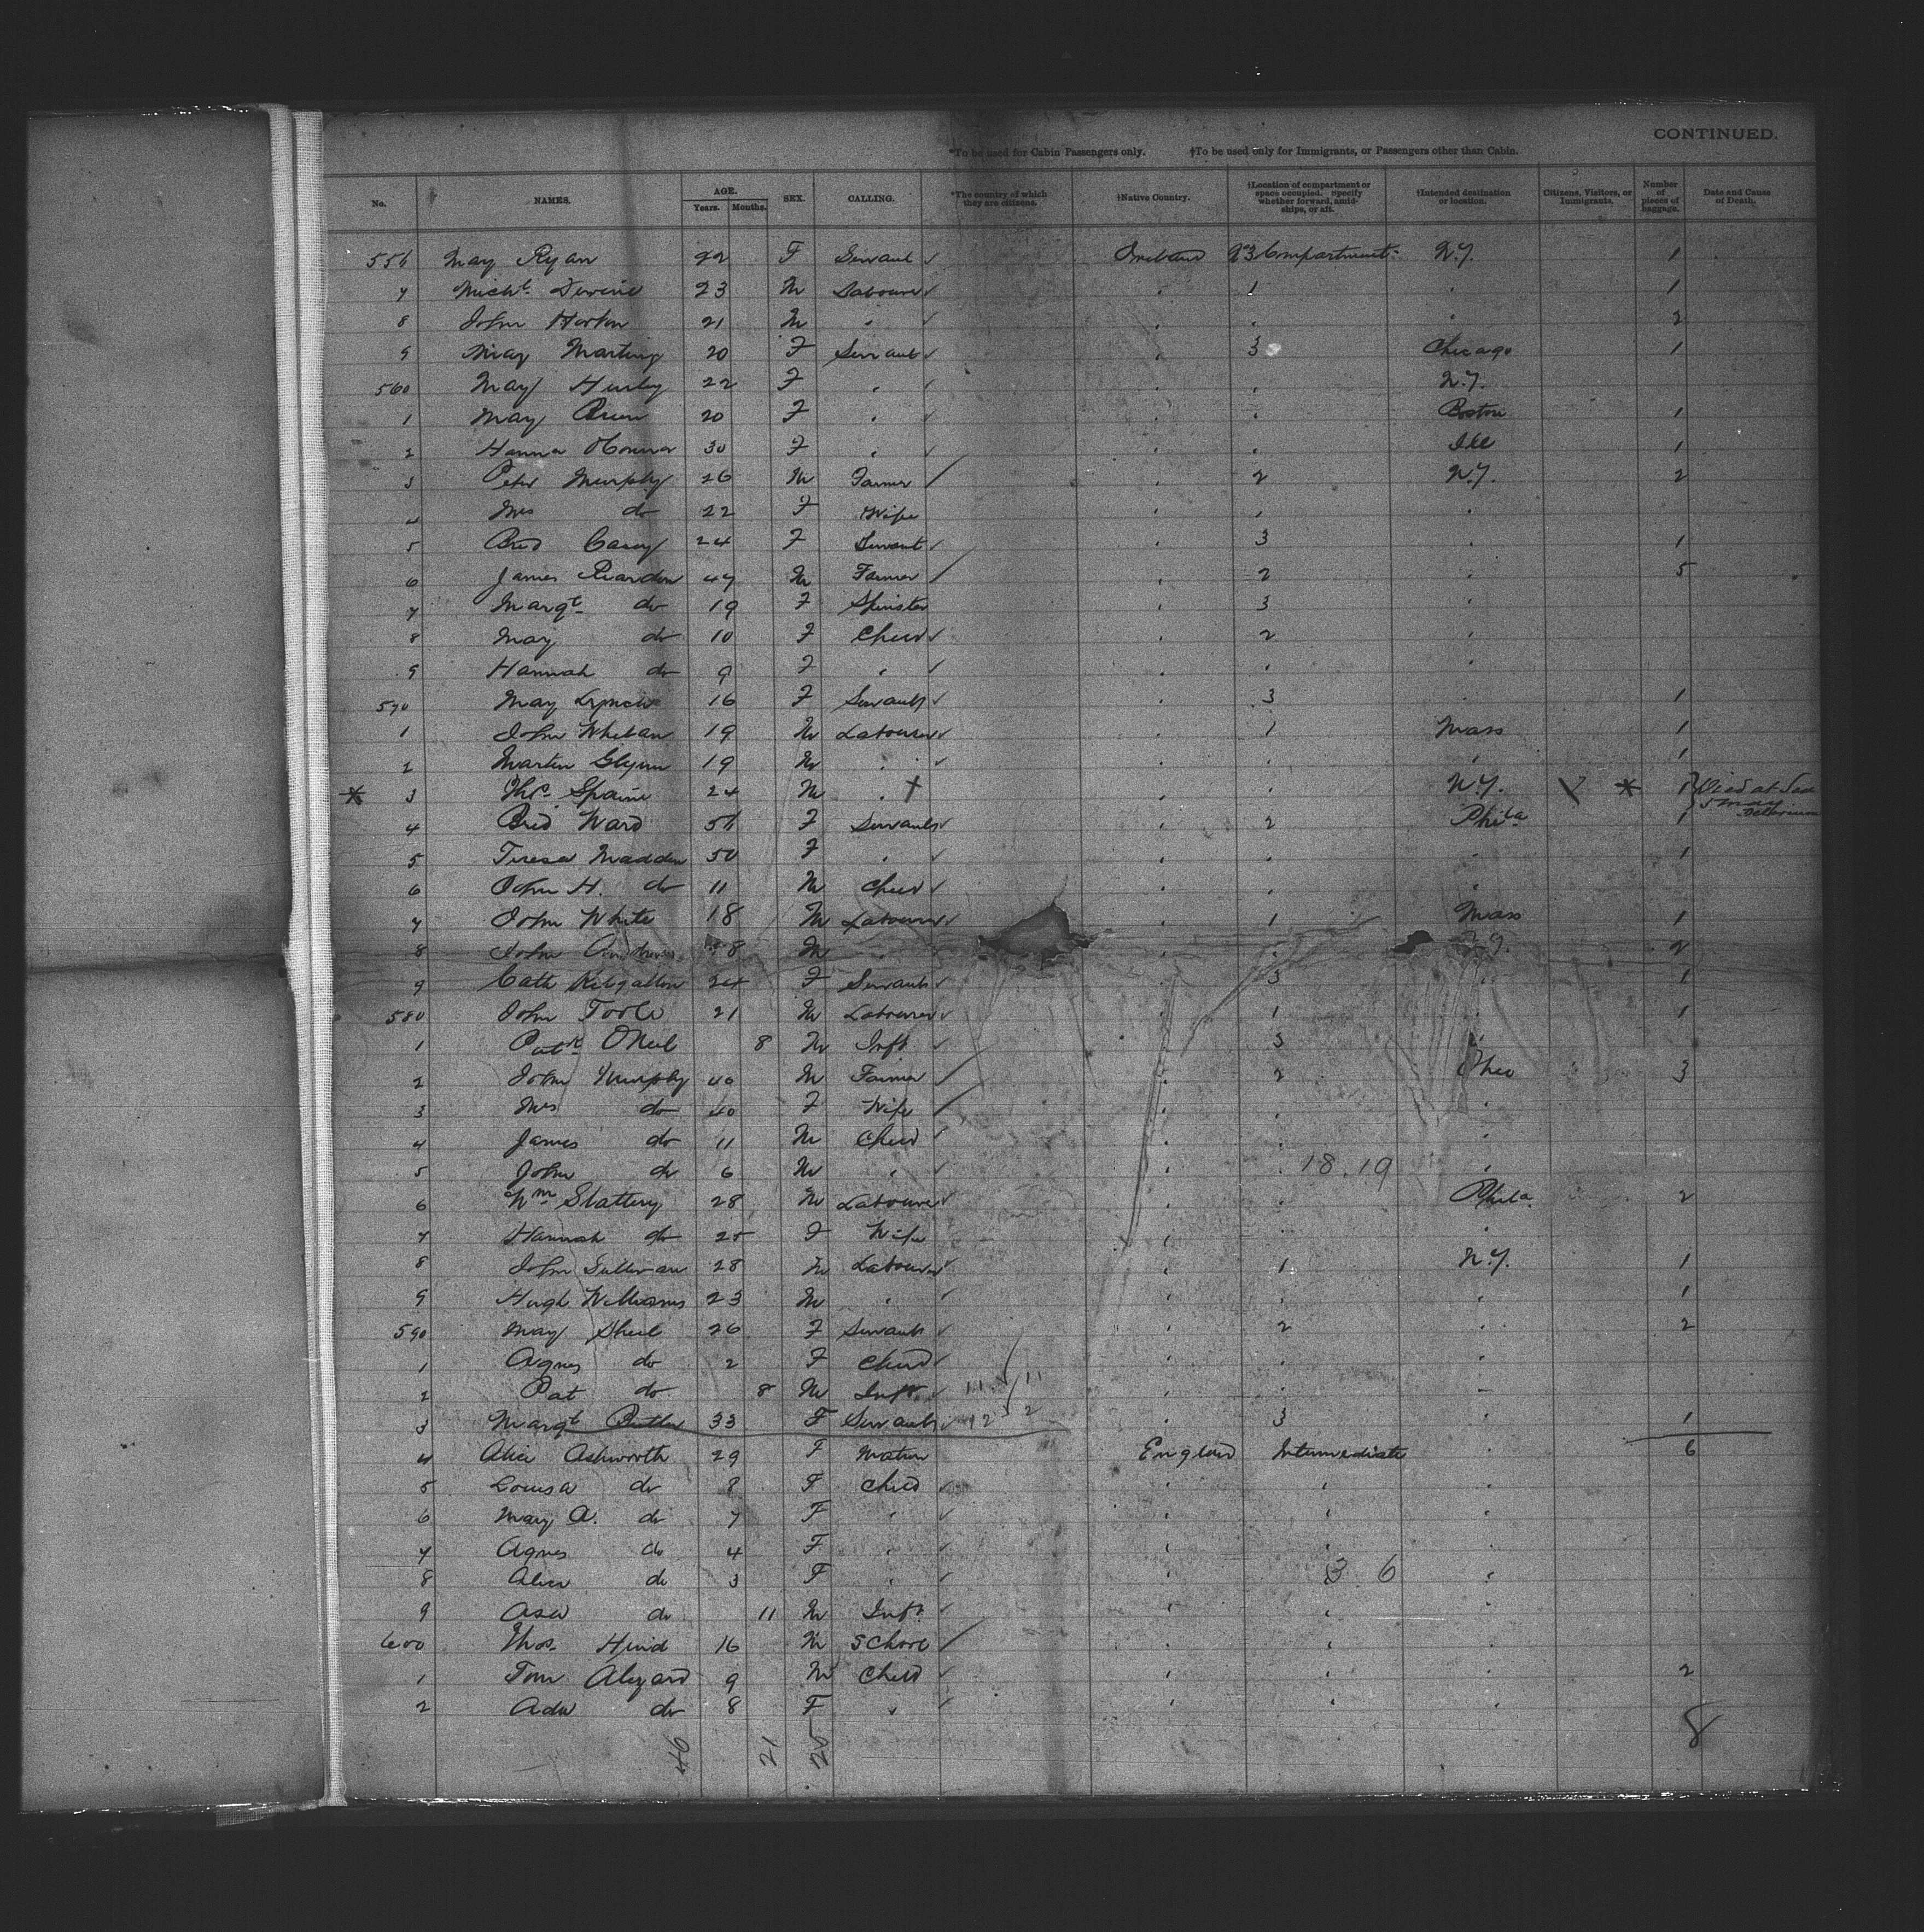 CONTINUED.
*To be used for Cabin Passengers only. †To be used only for Immigrants, or Passengers other than Cabin.
No. NAMES. AGE. Years. Months. SEX. CALLING. *The country of which they are citizens. †Native Country. †Location of compartment or space occupied. Specify whether forward, amidships, or aft. †Intended destination or location. Citizens, Visitors, or Immigrants. Number of pieces of baggage. Date and Cause of Death.
556 May Ryan 22 F Servant Ireland 3 Compartment N.Y. 1
7 Michl. Devine 23 M Labourer " 1 " 1
8 John Horton 21 M " " " " 2
9 May 20 F Servant " 3 Chicago 1
560 May Hurley 22 F " " " N.Y.
1 May 20 F " " " Boston 1
2 Hanna OConnor 30 F " " " Ill 1
3 Peter Murphy 26 M Farmer " 2 N.Y. 2
4 Mrs do 22 F Wife " " "
5 Brid Casey 24 F Servant " 3 " 1
6 James Reardon 47 M Farmer " 2 " 5
7 Margt. do 19 F Spinster " 3 "
8 May do 10 F Child " 2 "
9 Hannah do 9 F " " " "
570 May Lynch 16 F Servant " 3 " 1
1 John Whelan 19 M Labourer " 1 Mass 1
2 Martin Glynn 19 M " " " " 1
* 3 Thos. Spaine 24 M " † " " N.Y. * 1 Died at Sea 5 May Delirium
4 Brid Ward 56 F Servant " 2 Phila 1
5 Teresa Madden 50 F " " " " 1
6 John H. do 11 M Child " " "
7 John White 18 M Labourer " 1 Mass 1
8 John Andrews M " " " 2
9 Cath Kilgallon 24 F Servant " 3 " 1
580 John Toole 21 M Labourer " 1 " 1
1 Patk. ONeil 8 M Inft " 3 "
2 John Murphy 40 M Farmer " 2 Ohio 3
3 Mrs do 40 F Wife " " "
4 James do 11 M Child " " "
5 John do 6 M " " " 18.19 "
6 Wm Slattery 28 M Labourer " " Phila. 2
7 Hannah do 25 F Wife " " "
8 John Sullivan 28 M Labourer " 1 N.Y. 1
9 Hugh Williams 23 M " " " " 1
590 May Sheil 26 F Servant " 2 " 2
1 Agnes do 2 F Child " " "
2 Pat do 8 M Inft. 11 11 " " "
3 Margt Butler 33 F Servant 12 2 " 3 " 1
4 Alice Ashworth 29 F Matron England Intermediate " 6
5 Louisa do 8 F Child " " "
6 Mary A. do 7 F " " " "
7 Agnes do 4 F " " " "
8 Alice do 3 F " " 3 6 "
9 Asa do 11 M Inft. " " "
600 Thos. Hind 16 M Schore " " "
1 Tom Alezard 9 M Child " " " 2
2 Ada do 8 F " " " "
46 21 25 8